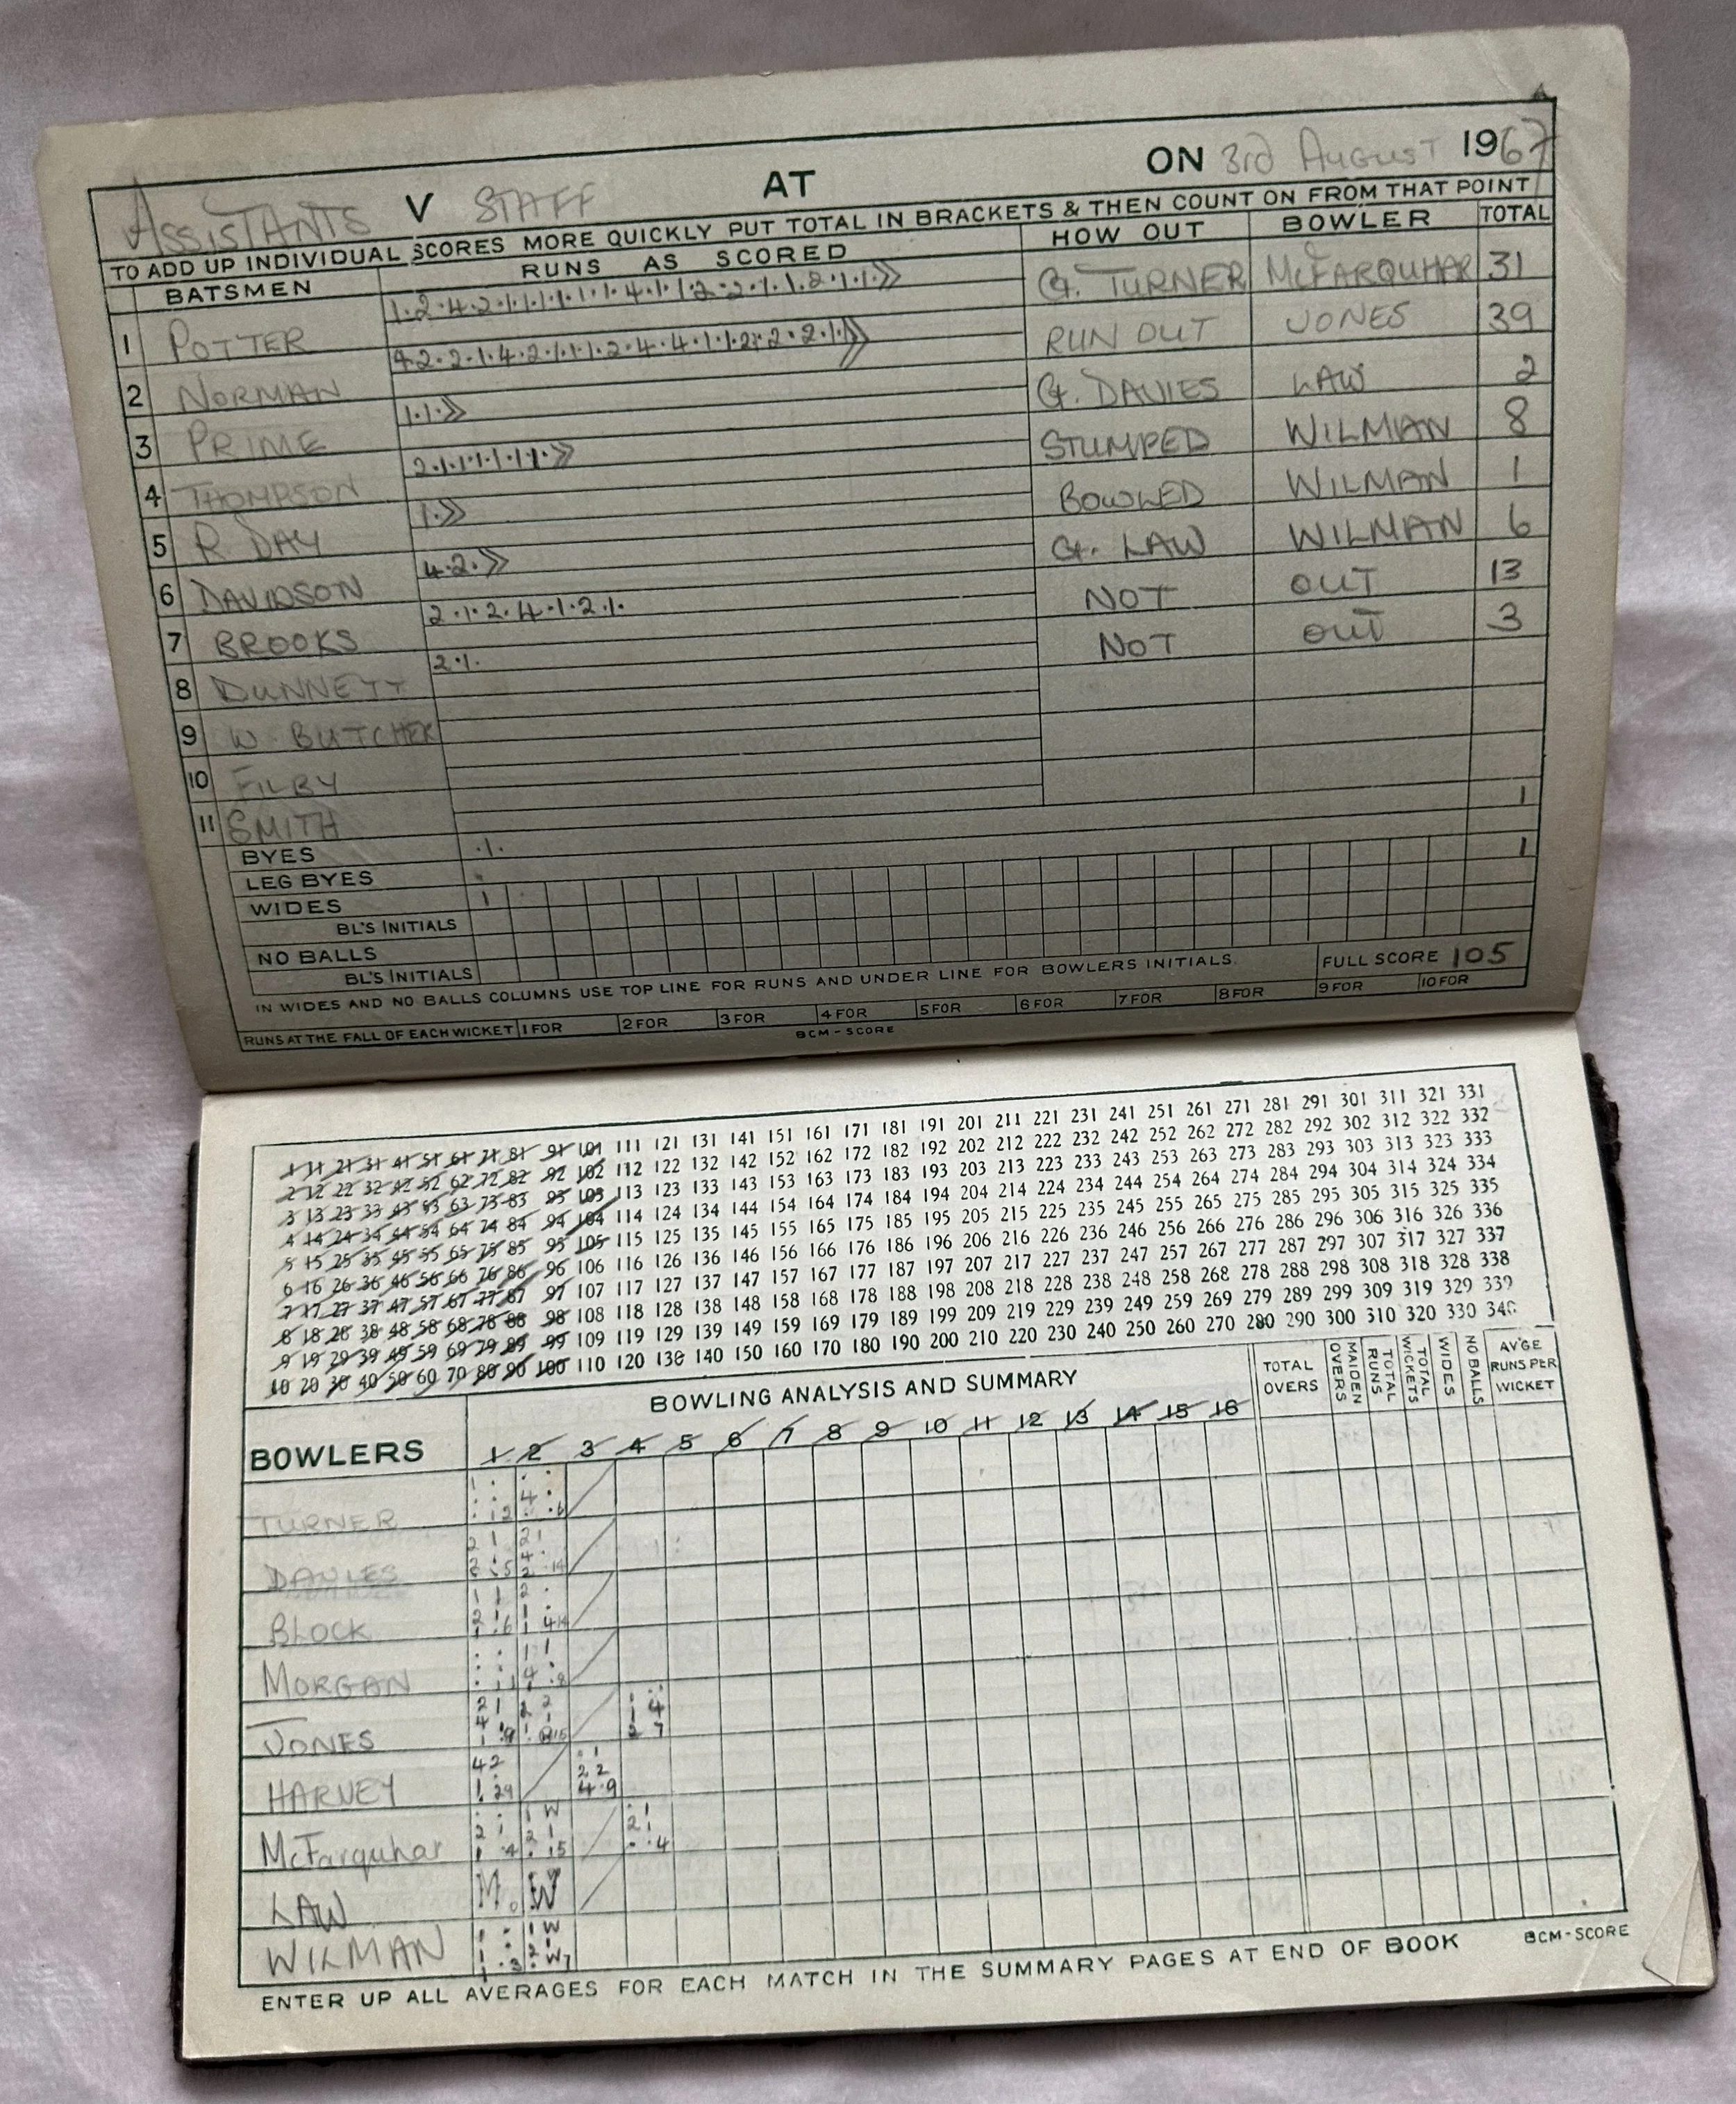 ASSISTANTS V STAFF AT ON 3rd AUGUST 1967
TO ADD UP INDIVIDUAL SCORES MORE QUICKLY PUT TOTAL IN BRACKETS & THEN COUNT ON FROM THAT POINT
BATSMEN RUNS AS SCORED HOW OUT BOWLER TOTAL
1 POTTER 1·2·4·2·1·1·1·1·1·1·4·1·1·2·2·1·1·2·1·1·» Ct. TURNER McFARQUHAR 31
2 NORMAN 4·2·2·1·4·2·1·1·1·2·4·4·1·1·2·2·2·1·1» RUN OUT JONES 39
3 PRIME 1·1·» Ct. DAVIES LAW 2
4 THOMPSON 2·1·1·1·1·1·1·» STUMPED WILMAN 8
5 R DAY 1·» BOWLED WILMAN 1
6 DAVIDSON 4·2·» Ct. LAW WILMAN 6
7 BROOKS 2·1·2·4·1·2·1· NOT OUT 13
8 DUNNETT 2·1· NOT OUT 3
9 W BUTCHER
10 FILBY
11 SMITH
BYES ·1· 1
LEG BYES
WIDES 1 1
BL'S INITIALS
NO BALLS
BL'S INITIALS
FULL SCORE 105
IN WIDES AND NO BALLS COLUMNS USE TOP LINE FOR RUNS AND UNDER LINE FOR BOWLERS INITIALS.
RUNS AT THE FALL OF EACH WICKET 1 FOR 2 FOR 3 FOR 4 FOR 5 FOR 6 FOR 7 FOR 8 FOR 9 FOR 10 FOR
BCM-SCORE
1 11 21 31 41 51 61 71 81 91 101 111 121 131 141 151 161 171 181 191 201 211 221 231 241 251 261 271 281 291 301 311 321 331
2 12 22 32 42 52 62 72 82 92 102 112 122 132 142 152 162 172 182 192 202 212 222 232 242 252 262 272 282 292 302 312 322 332
3 13 23 33 43 53 63 73 83 93 103 113 123 133 143 153 163 173 183 193 203 213 223 233 243 253 263 273 283 293 303 313 323 333
4 14 24 34 44 54 64 74 84 94 104 114 124 134 144 154 164 174 184 194 204 214 224 234 244 254 264 274 284 294 304 314 324 334
5 15 25 35 45 55 65 75 85 95 105 115 125 135 145 155 165 175 185 195 205 215 225 235 245 255 265 275 285 295 305 315 325 335
6 16 26 36 46 56 66 76 86 96 106 116 126 136 146 156 166 176 186 196 206 216 226 236 246 256 266 276 286 296 306 316 326 336
7 17 27 37 47 57 67 77 87 97 107 117 127 137 147 157 167 177 187 197 207 217 227 237 247 257 267 277 287 297 307 317 327 337
8 18 28 38 48 58 68 78 88 98 108 118 128 138 148 158 168 178 188 198 208 218 228 238 248 258 268 278 288 298 308 318 328 338
9 19 29 39 49 59 69 79 89 99 109 119 129 139 149 159 169 179 189 199 209 219 229 239 249 259 269 279 289 299 309 319 329 339
10 20 30 40 50 60 70 80 90 100 110 120 130 140 150 160 170 180 190 200 210 220 230 240 250 260 270 280 290 300 310 320 330 340
BOWLING ANALYSIS AND SUMMARY
BOWLERS 1 2 3 4 5 6 7 8 9 10 11 12 13 14 15 16 TOTAL OVERS MAIDEN OVERS TOTAL RUNS TOTAL WICKETS WIDES NO BALLS AV'GE RUNS PER WICKET
TURNER
DAVIES
BLOCK
MORGAN
JONES
HARVEY
McFarquhar
LAW M W
WILMAN
ENTER UP ALL AVERAGES FOR EACH MATCH IN THE SUMMARY PAGES AT END OF BOOK
BCM-SCORE